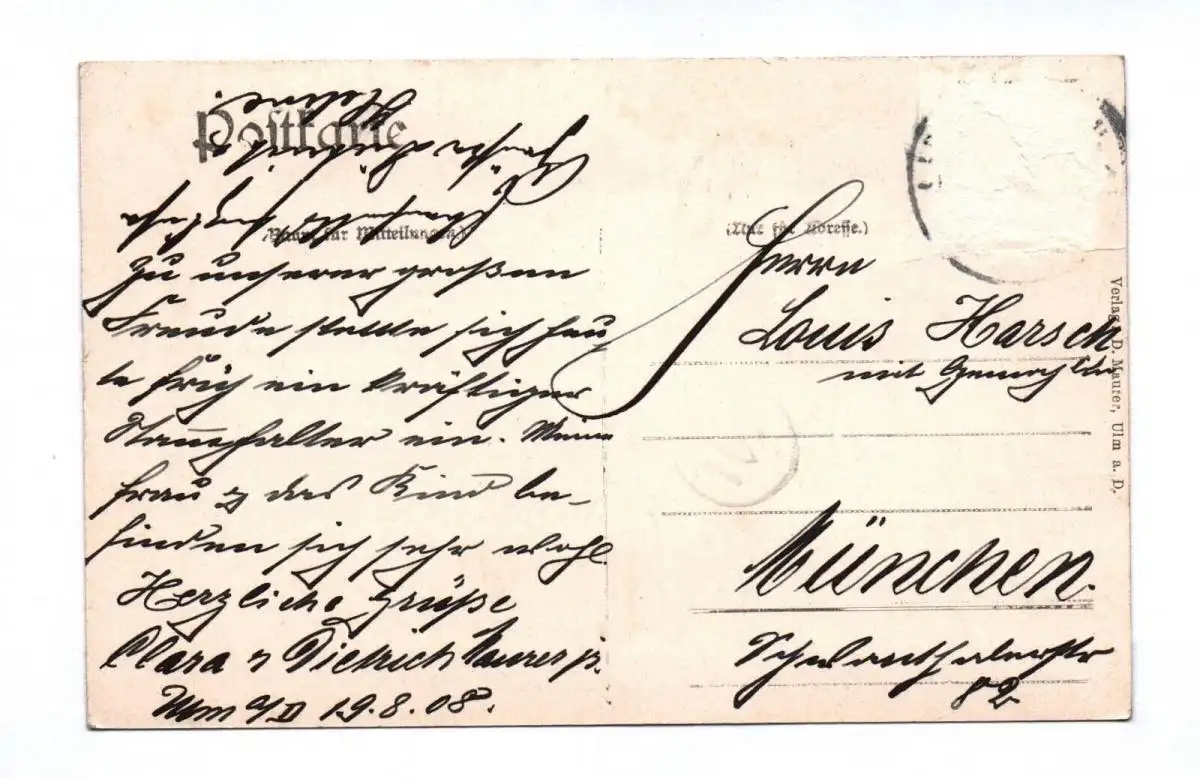 Postkarte
(Raum für Mitteilungen)
Zu unserer großen
Freude stellte sich heu
te früh ein kräftiger
Stammhalter ein. Meine
Frau & das Kind be-
finden sich sehr wohl.
Herzliche Grüße
Clara & Dietrich Maurer jr.
Ulm a/D 19.8.08.
(Nur für Adresse.)
Herrn
Louis Harsch
mit Gemahlin
München.
Schwanthalerstr
82
Verlag v. D. Maurer, Ulm a. D.